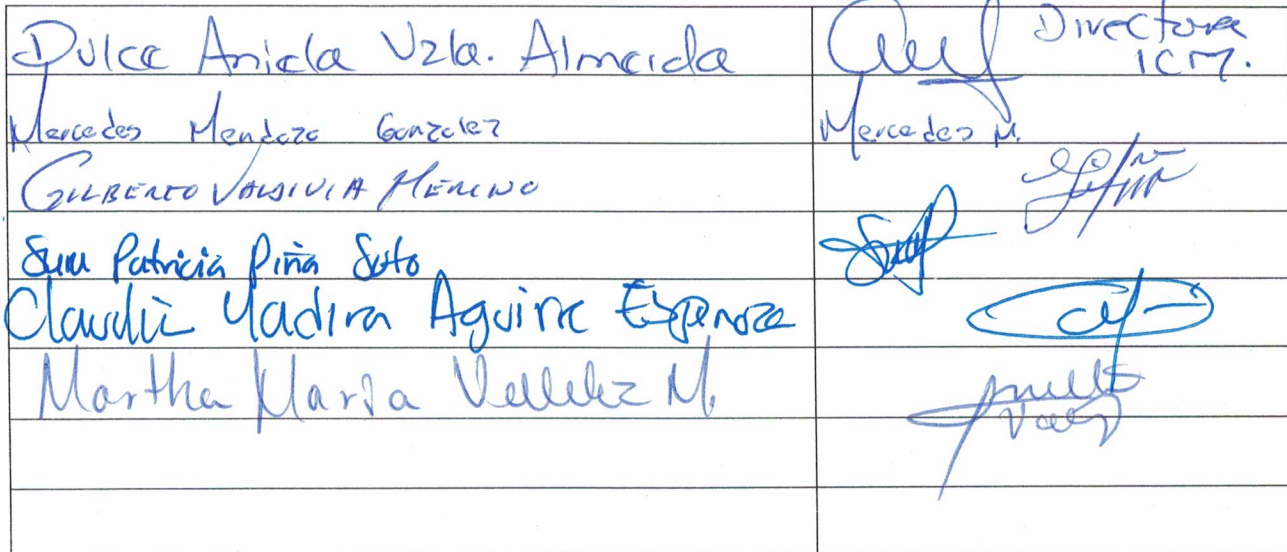 Dulce Aniela Vzla. Almeida
Directora
ICM.
Mercedes Mendoza Gonzalez
Mercedes M.
GILBERTO VALDIVIA MERINO
Patricia Piña Soto
Claudia Yadira Aguirre Espinoza
Martha Maria M.